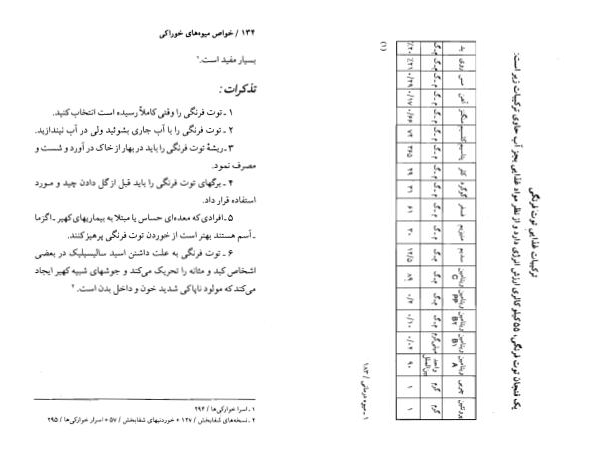 ۱۳۴ / خواص میوه‌های خوراکی
بسیار مفید است.۲
تذکرات :
۱ ـ توت فرنگی را وقتی کاملاً رسیده است انتخاب کنید.
۲ ـ توت فرنگی را با آب جاری بشوئید ولی در آب نیندازید.
۳ ـ ریشهٔ توت فرنگی را باید در بهار از خاک در آورد و شست و
مصرف نمود.
۴ ـ برگهای توت فرنگی را باید قبل از گل دادن چید و مورد
استفاده قرار داد.
۵ ـ افرادی که معده‌ای حساس یا مبتلا به بیماریهای کهیر ـ اگزما
ـ آسم هستند بهتر است از خوردن توت فرنگی پرهیز کنند.
۶ ـ توت فرنگی به علت داشتن اسید سالیسیلیک در بعضی
اشخاص کبد و مثانه را تحریک می‌کند و جوشهای شبیه کهیر ایجاد
می‌کند که مولود ناپاکی شدید خون و داخل بدن است.۲
۱ ـ اسرار خوراکی‌ها / ۲۹۴
۲ ـ نسخه‌های شفابخش / ۱۲۷ * خوردنیهای شفابخش / ۵۷ * اسرار خوراکی‌ها / ۲۹۵
ترکیبات غذایی توت فرنگی
یک فنجان توت فرنگی، ۵۵ کیلو کالری ارزش انرژی دارد و از نظر مواد غذایی بجز آب حاوی ترکیبات زیر است:
پروتئین گرم ۱
چربی گرم ۱
ویتامین A واحد بین‌المللی ۹۰
ویتامین B۱ میلی‌گرم ۰/۰۲
ویتامین B۲ م.گ ۰/۱۰
ویتامین PP م.گ ۰/۴
ویتامین C م.گ ۸۹
سدیم م.گ ۱۲/۵
منیزیم م.گ ۳۰
فسفر م.گ ۶۱
گوگرد م.گ ۳۱
کلر م.گ ۳۹
پتاسیم م.گ ۳۶۵
کلسیم م.گ ۷۴
منگنز م.گ ۰/۶۶
آهن م.گ ۰/۱۷
مس م.گ ۰/۲۹
روی م.گ
ید م.گ
(۱)
۱ ـ میوه درمانی / ۱۸۳